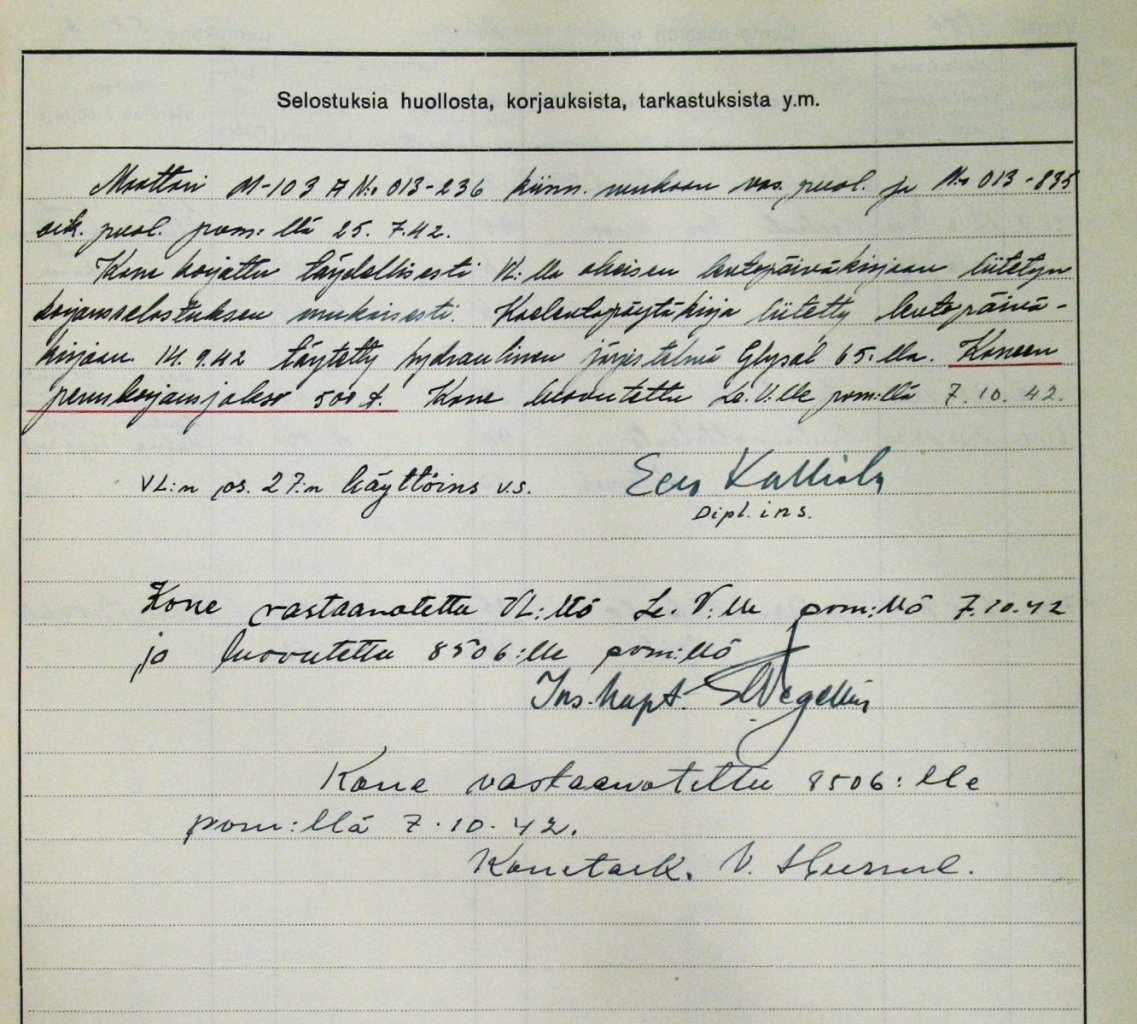 Selostuksia huollosta, korjauksista, tarkastuksista y.m.
Moottori M-103 A N:o 013-236 kiinn. mukaan vas. puol. ja N:o 013-835
oik. puol. pom: llä 25. 7.42.
Kone korjattu täydellisesti VL: lle oheisen lentopäiväkirjaan liitetyn
korjausselostuksen mukaisesti. Koelentopöytäkirja liitetty lentopäivä-
kirjaan. 14.9.42 täytetty hydraulinen järjestelmä Glysal 65:lla. Koneen
peruskorjausjakso 500 t. Kone luovutettu Le.V.lle pom:llä 7.10.42.
VL:n os. 27:n käyttöins v.s. Kalliola
Dipl.ins.
Kone vastaanotettu VL:ltä Le. V:lle pom:llä 7.10.42
ja luovutettu 8506:lle pom:llä
Ins.kapt.
Kone vastaanotettu 8506: lle
pom:llä 7.10.42.
Konetark. V.